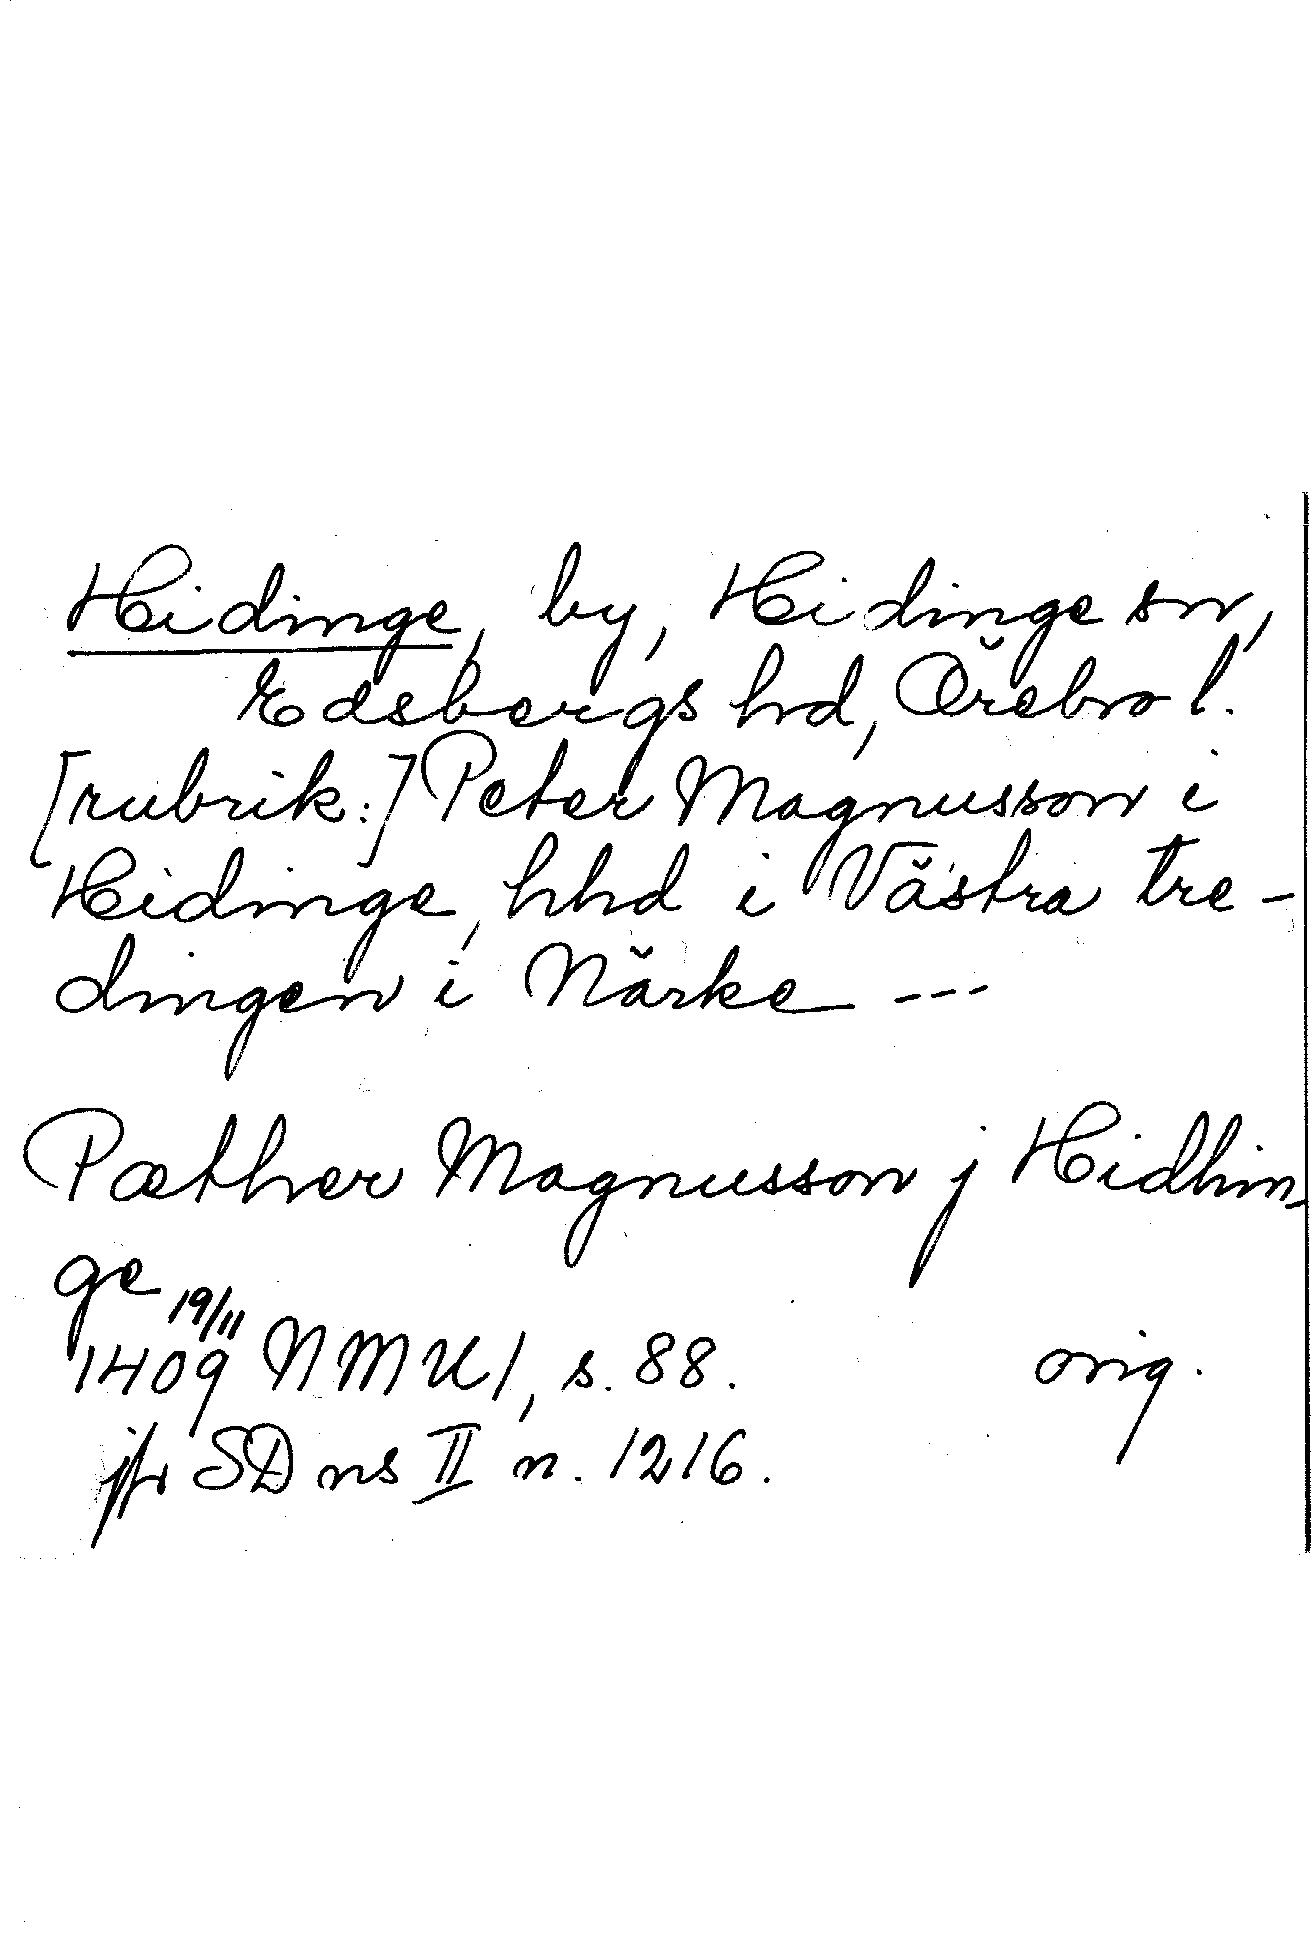 Hidinge, by, Hidinge sn,
Edsbergs hd, Örebro l.
[rubrik:] Peter Magnusson i
Hidinge, hhd i Västra tre-
dingen i Närke ---
Pæther Magnusson j Hidhin-
ge
19/11
1409 NMU1, s. 88. orig.
jfr SD ns II n. 1216.